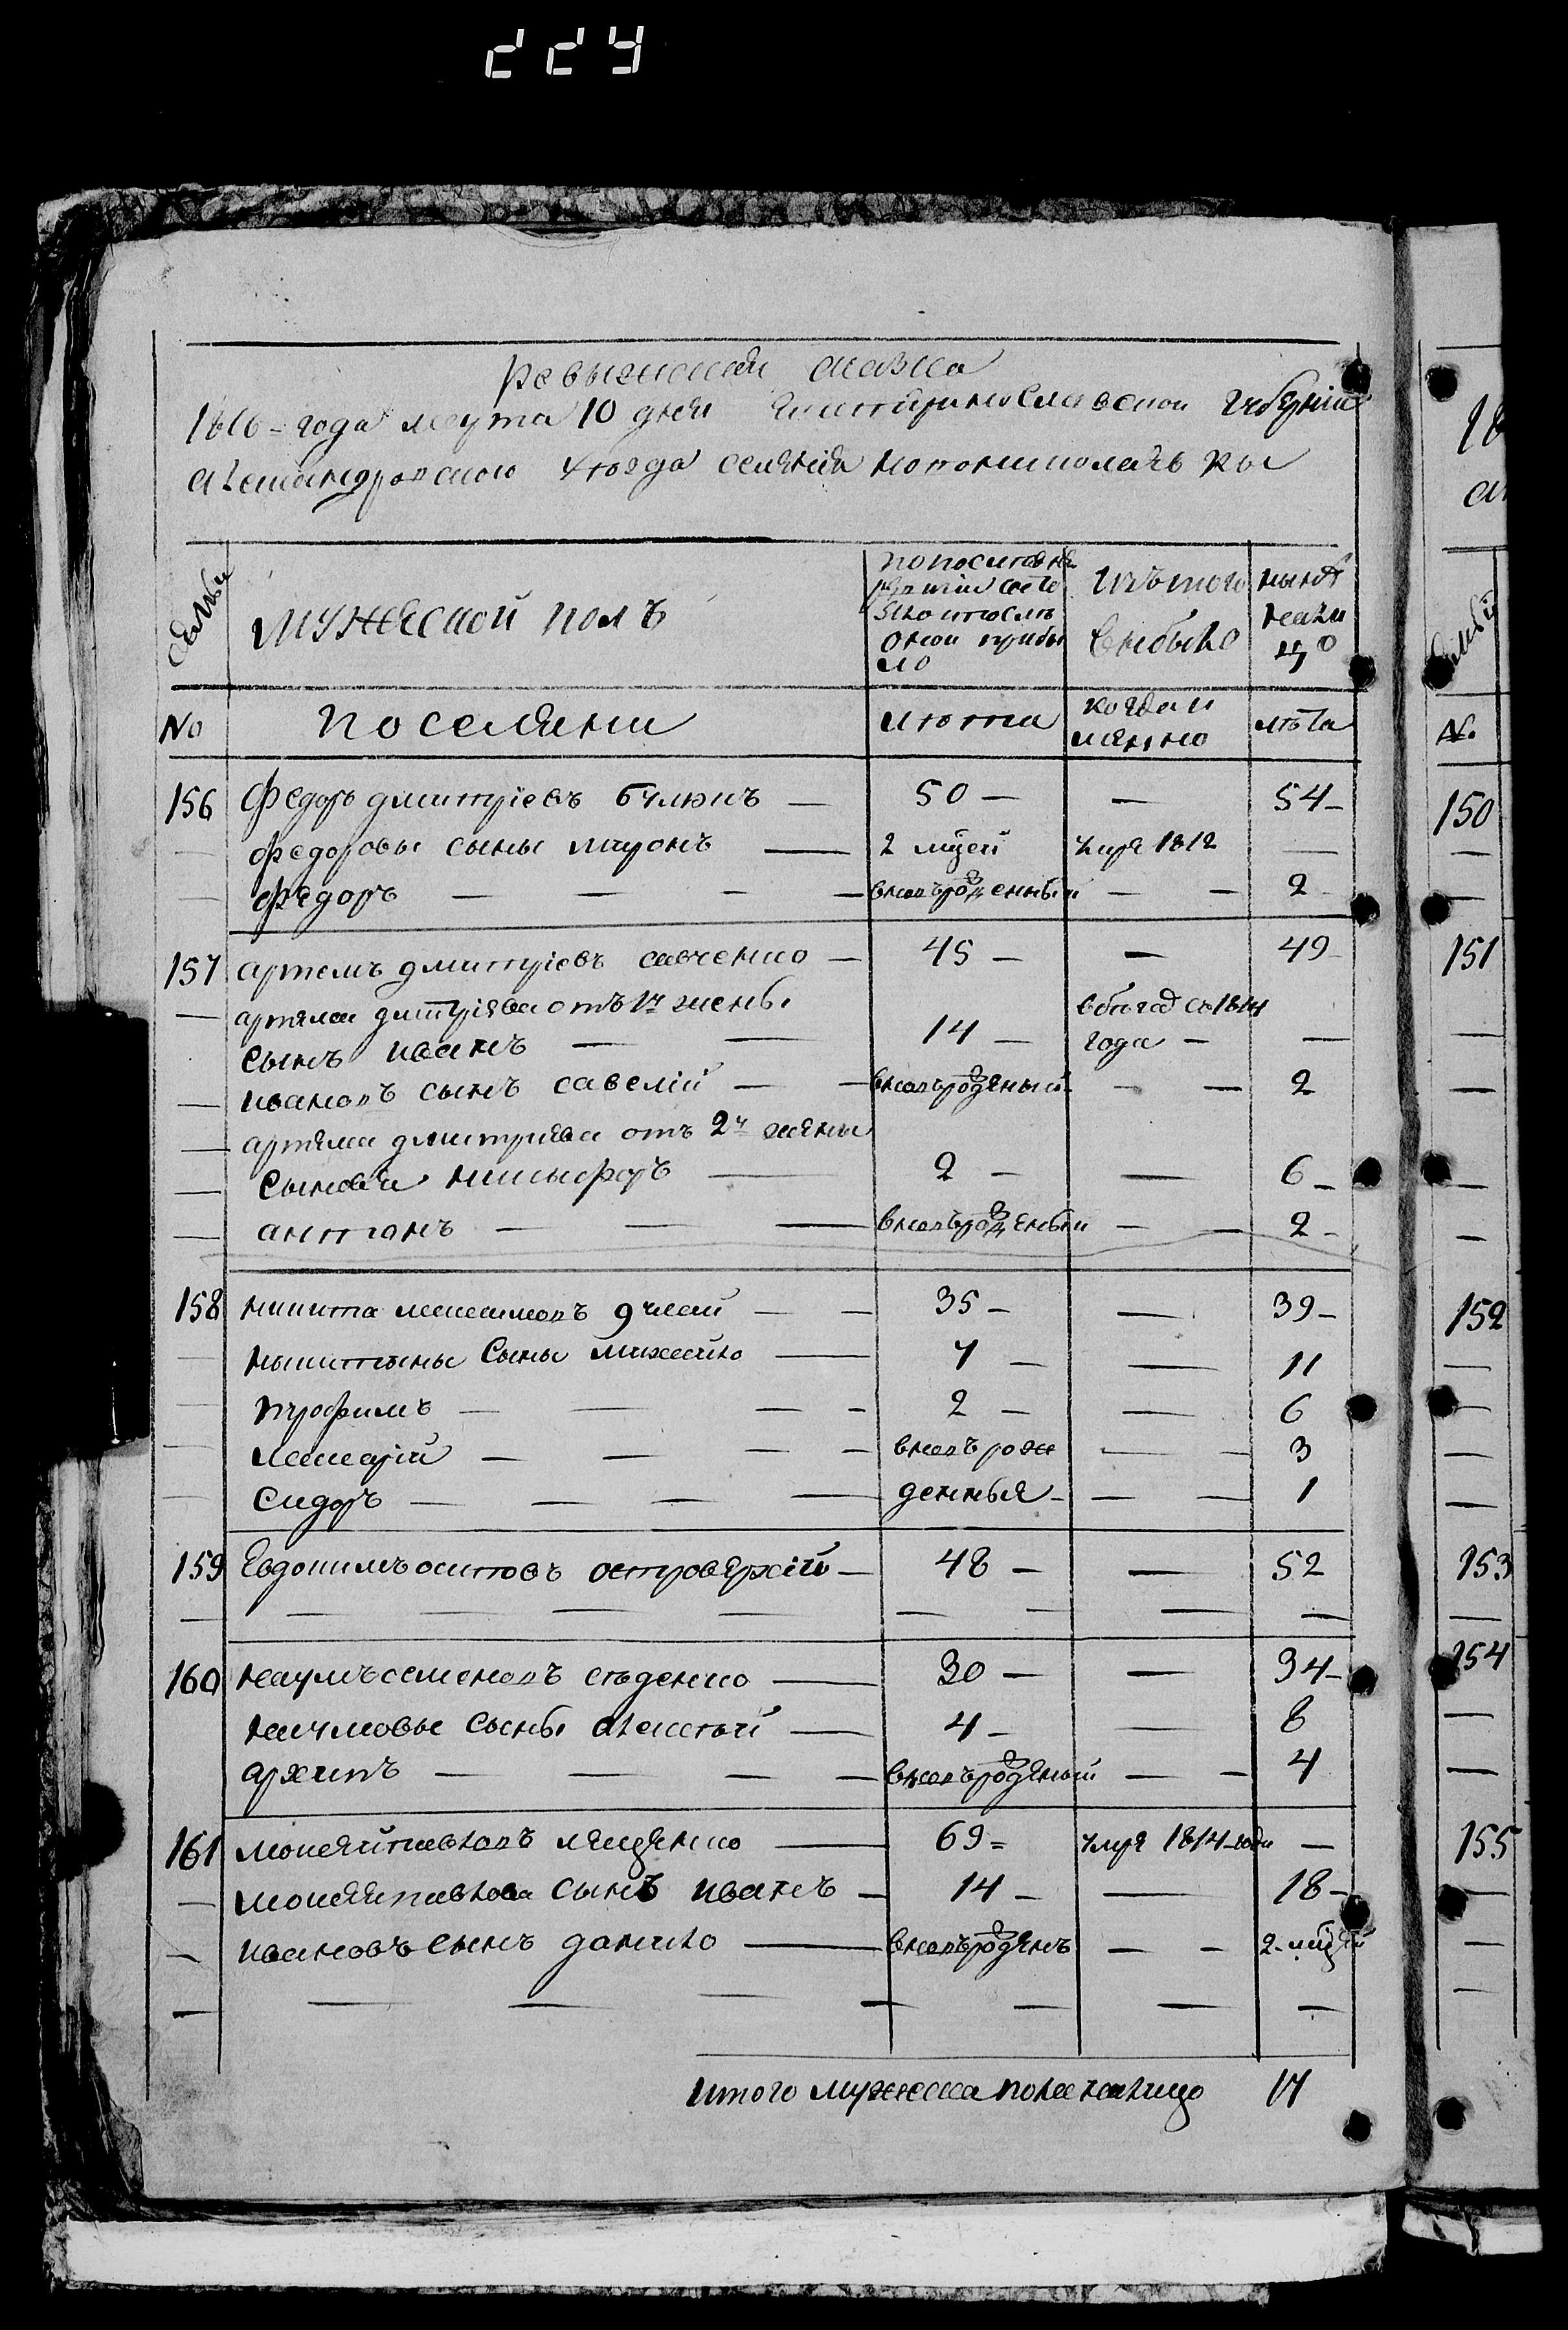 224
Ревызская сказка
1816 = года марта 10 дня Екатериносласкои Губернии
александровского уезда селения новониколаевки
Семьи
мужеской полъ
по последней ревизии состояло и после оной прибыло
изъ того выбыло
ныне налицо
No
поселяни
лета
когда именно
лета
156 Федоръ дмитріевъ булжнъ — 50 — — 54 —
Федоровы сыны миронъ — 2 мцей умре 1812 —
Федоръ — — — — вновърожденный — — 2
157 артемъ дмитріевъ савченко — 45 — — 49
— артема дмитріева отъ 1й жены
сынъ иванъ — — 14 — в бегах съ 1814 года — —
— ивановъ сынъ савелій — — вновърожденый — — 2
— артема дмитриева отъ 2й жены
— сыновья никыфоръ — 2 — — 6 —
— антонъ — — — вновърожденый — — 2 —
158 никита максимовъ — — 35 — — 39 —
никитины сыны михайло — 7 — — 11
трофимъ — — — — 2 — — 6
макарій — — — — вновърож — — 3
сидоръ — — — — денныя — — — 1
159 Евдокимъ осиповъ островерхій — 48 — — 52
160 наумъ семеновъ седенко — 30 — — 34 —
наумовы сыны алексей — 4 — — 8
архипъ — — — — вновърожденый — — 4
161 мокей павловъ лященко — 69 = умре 1814 года —
— мокея павлова сынъ иванъ — 14 — — 18 —
— ивановъ сынъ данило — вновърожденъ — — 2 мцей
итого мужеска пола налицо 17
150
151
152
153
154
155
No